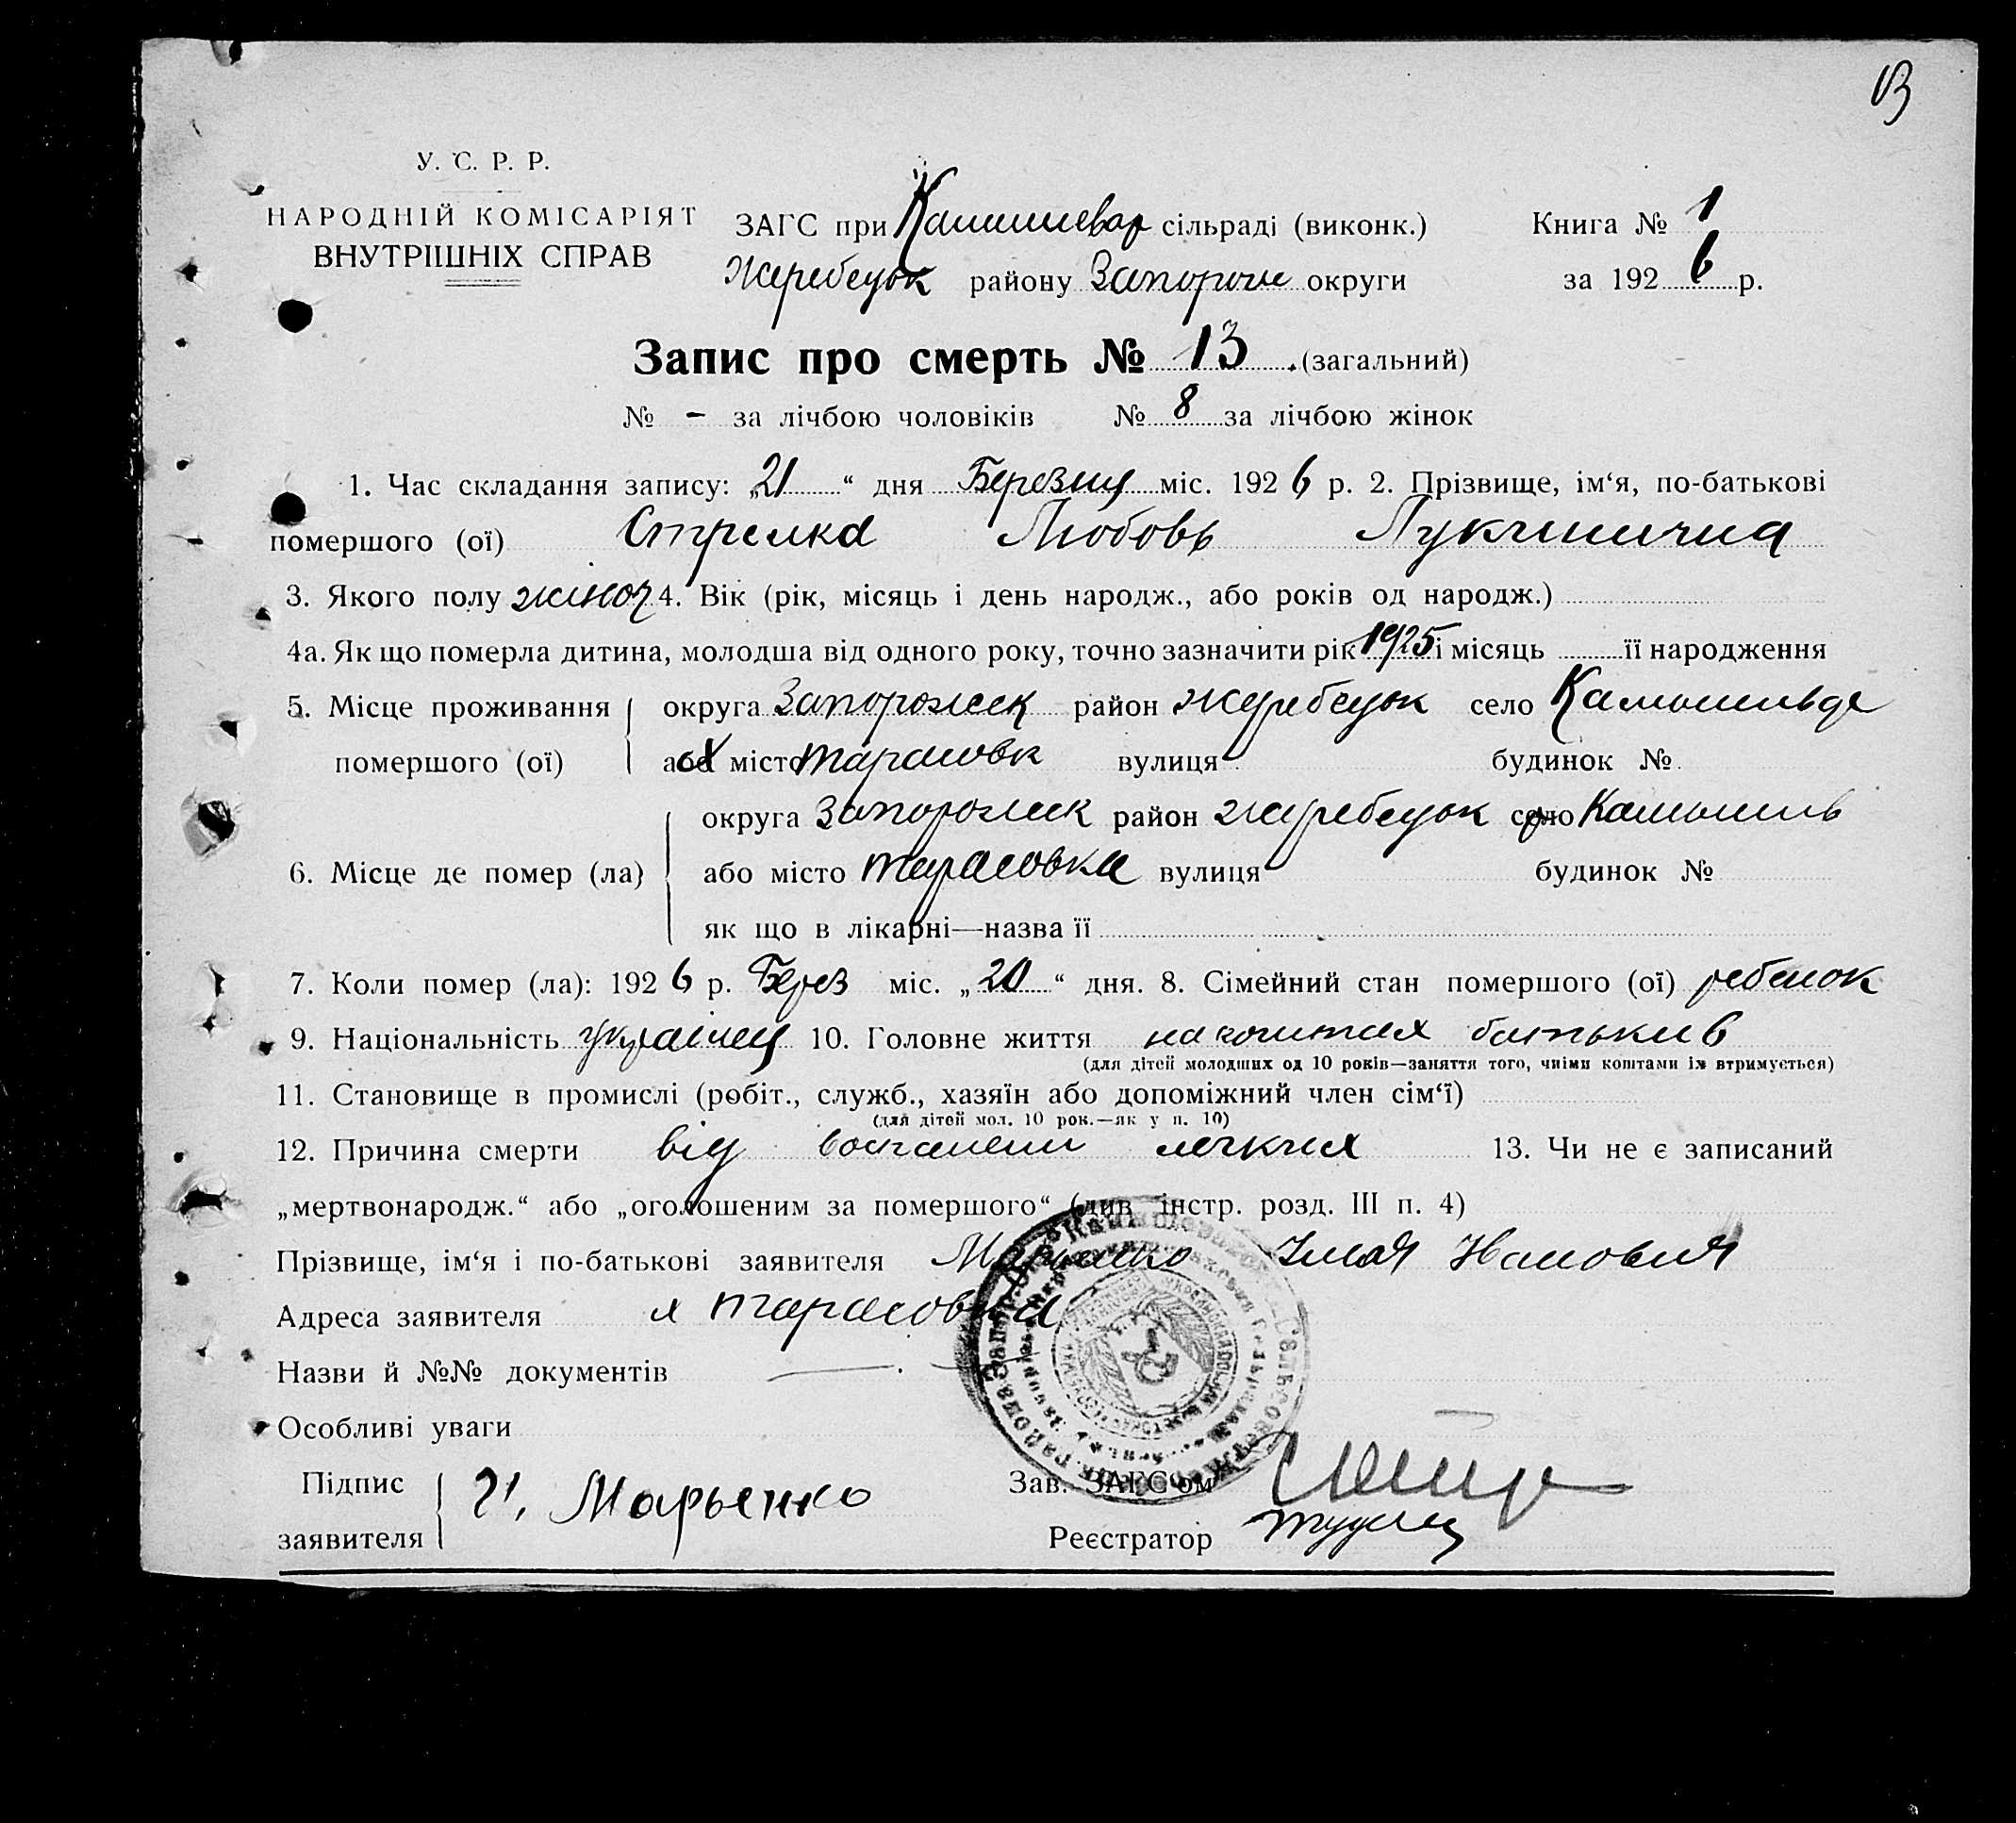 13
У. С. Р. Р.
НАРОДНІЙ КОМІСАРІЯТ
ВНУТРІШНІХ СПРАВ
ЗАГС при Камишевар сільраді (виконк.) Книга № 1
Жеребецьк району Запорож округи за 1926 р.
Запис про смерть № 13 (загальний)
№ - за лічбою чоловіків № 8 за лічбою жінок
1. Час складання запису: „21“ дня Березня міс. 1926 р. 2. Прізвище, ім‘я, по-батькові
помершого (ої) Стрелка Любовь Лукинична
3. Якого полу жіноч 4. Вік (рік, місяць і день народж., або років од народж.)
4а. Як що померла дитина, молодша від одного року, точно зазначити рік 1925 і місяць її народження
5. Місце проживання округа Запорожск район жеребецьк село
помершого (ої) або місто Тарасовк вулиця будинок №
округа Запорожск район жеребецьк село
6. Місце де помер (ла) або місто Тарасовка вулиця будинок №
як що в лікарні—назва її
7. Коли помер (ла): 1926 р. Берез міс. „20“ дня. 8. Сімейний стан помершого (ої) ребенок
9. Національність 10. Головне життя на коштах батькив
(для дітей молодших од 10 років—заняття того, чиїми коштами їх втримується)
11. Становище в промислі (робіт., служб., хазяїн або допоміжний член сім‘ї)
(для дітей мол. 10 рок.—як у п. 10)
12. Причина смерти від воспалени легких 13. Чи не є записаний
„мертвонародж.“ або „оголошеним за помершого“ (див інстр. розд. III п. 4)
Прізвище, ім‘я і по-батькові заявителя Марьенко Илья Иванович
Адреса заявителя Тарасовка
Назви й №№ документів
Особливі уваги
Підпис Зав. ЗАГС‘ом
И. Марьенко
заявителя Реєстратор